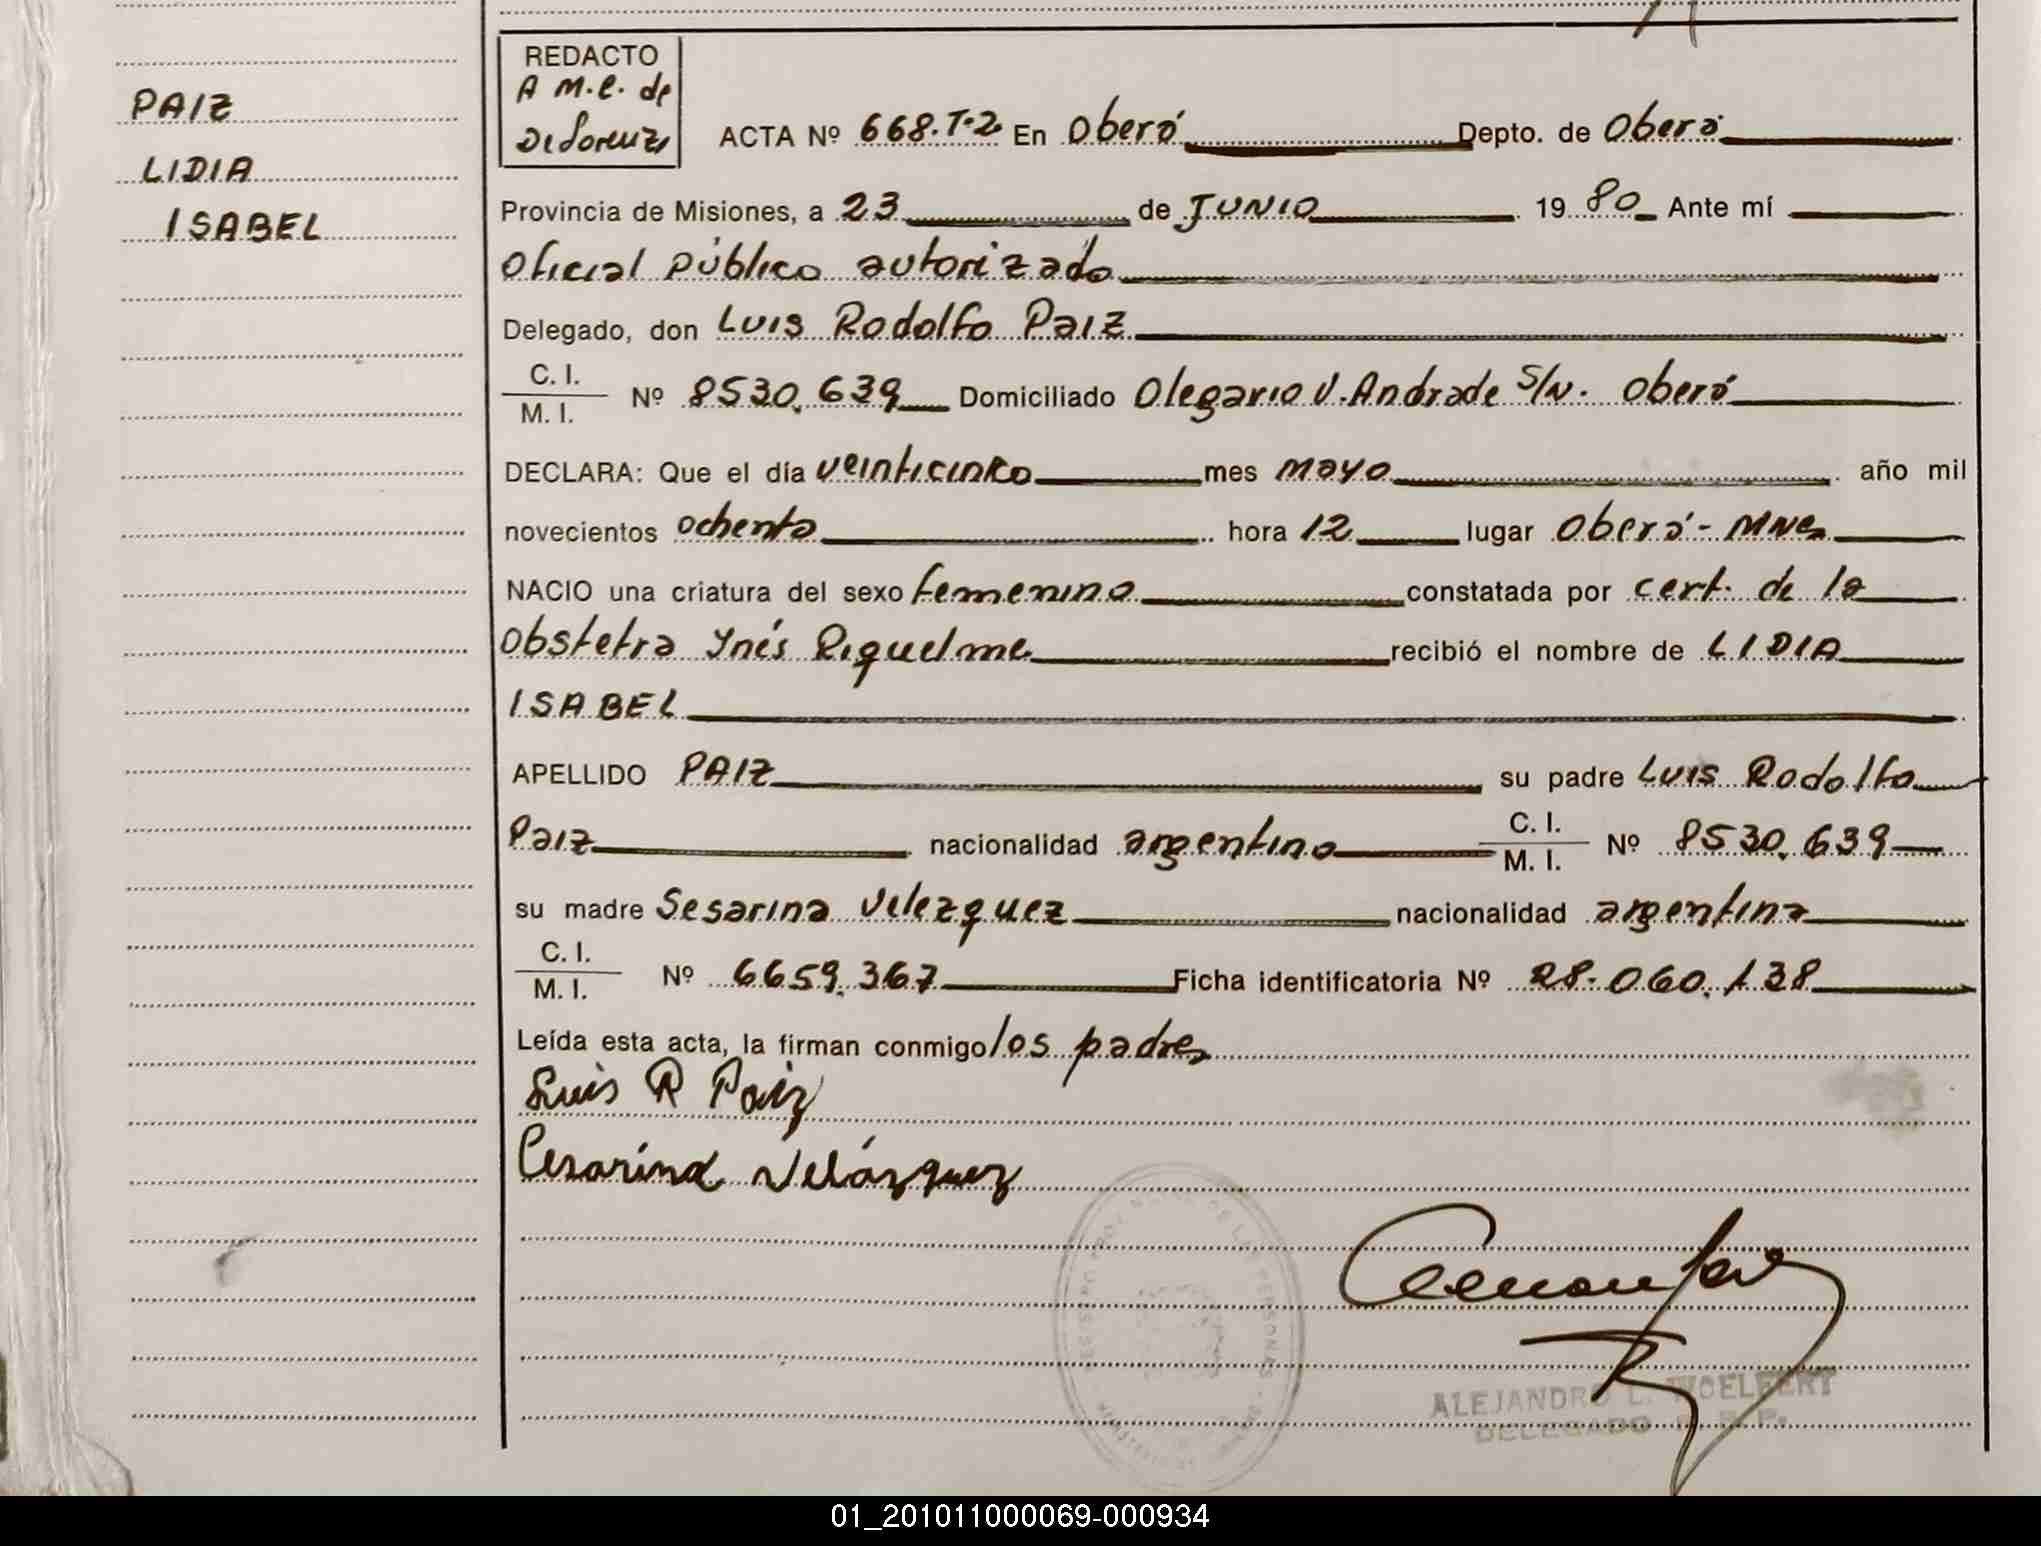 PAIZ
LIDIA
ISABEL
REDACTO
A M.C. de
ACTA Nº 668.T-2 En Oberá Depto. de Oberá
Provincia de Misiones, a 23 de JUNIO 1980 Ante mí
Oficial público autorizado
Delegado, don Luis Rodolfo Paiz
C. I.
M. I. Nº 8530.639 Domiciliado Olegario V. Andrade S/N. Oberá
DECLARA: Que el día veinticinko mes mayo año mil
novecientos ochenta hora 12 lugar Oberá - Mnes
NACIO una criatura del sexo femenino constatada por cert. de la
Obstetra Ynés Riquelme recibió el nombre de LIDIA
ISABEL
APELLIDO PAIZ su padre Luis Rodolfo
Paiz nacionalidad argentino C. I. M. I. Nº 8530.639
su madre Sesarina Velezquez nacionalidad argentina
C. I.
M. I. Nº 6659.367 Ficha identificatoria Nº 28.060.138
Leída esta acta, la firman conmigo los padres
Luis R Paiz
Cesarina Velázquez
ALEJANDRO L. WOELFERT
DELEGADO R. P.
01_201011000069-000934